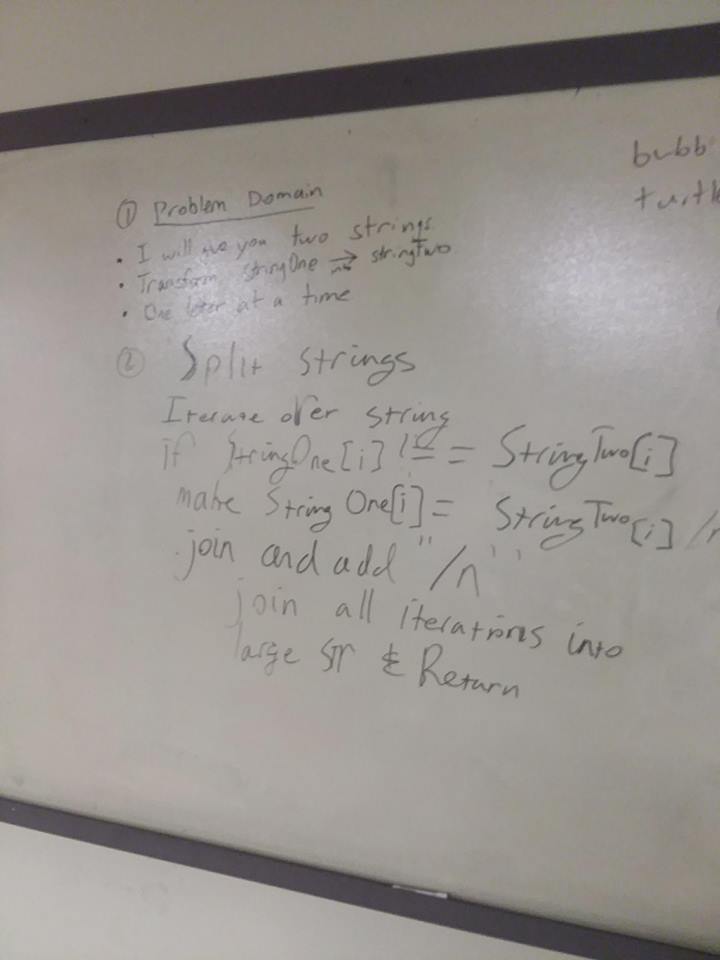 ① Problem Domain
• I will give you two strings.
• Transform stringOne → stringTwo
into
• One letter at a time
② Split strings
Iterate over string
if StringOne[i] !== StringTwo[i]
make StringOne[i] = StringTwo[i] /n
join and add "/n"
join all iterations into
large str & Return
bubb
turtle